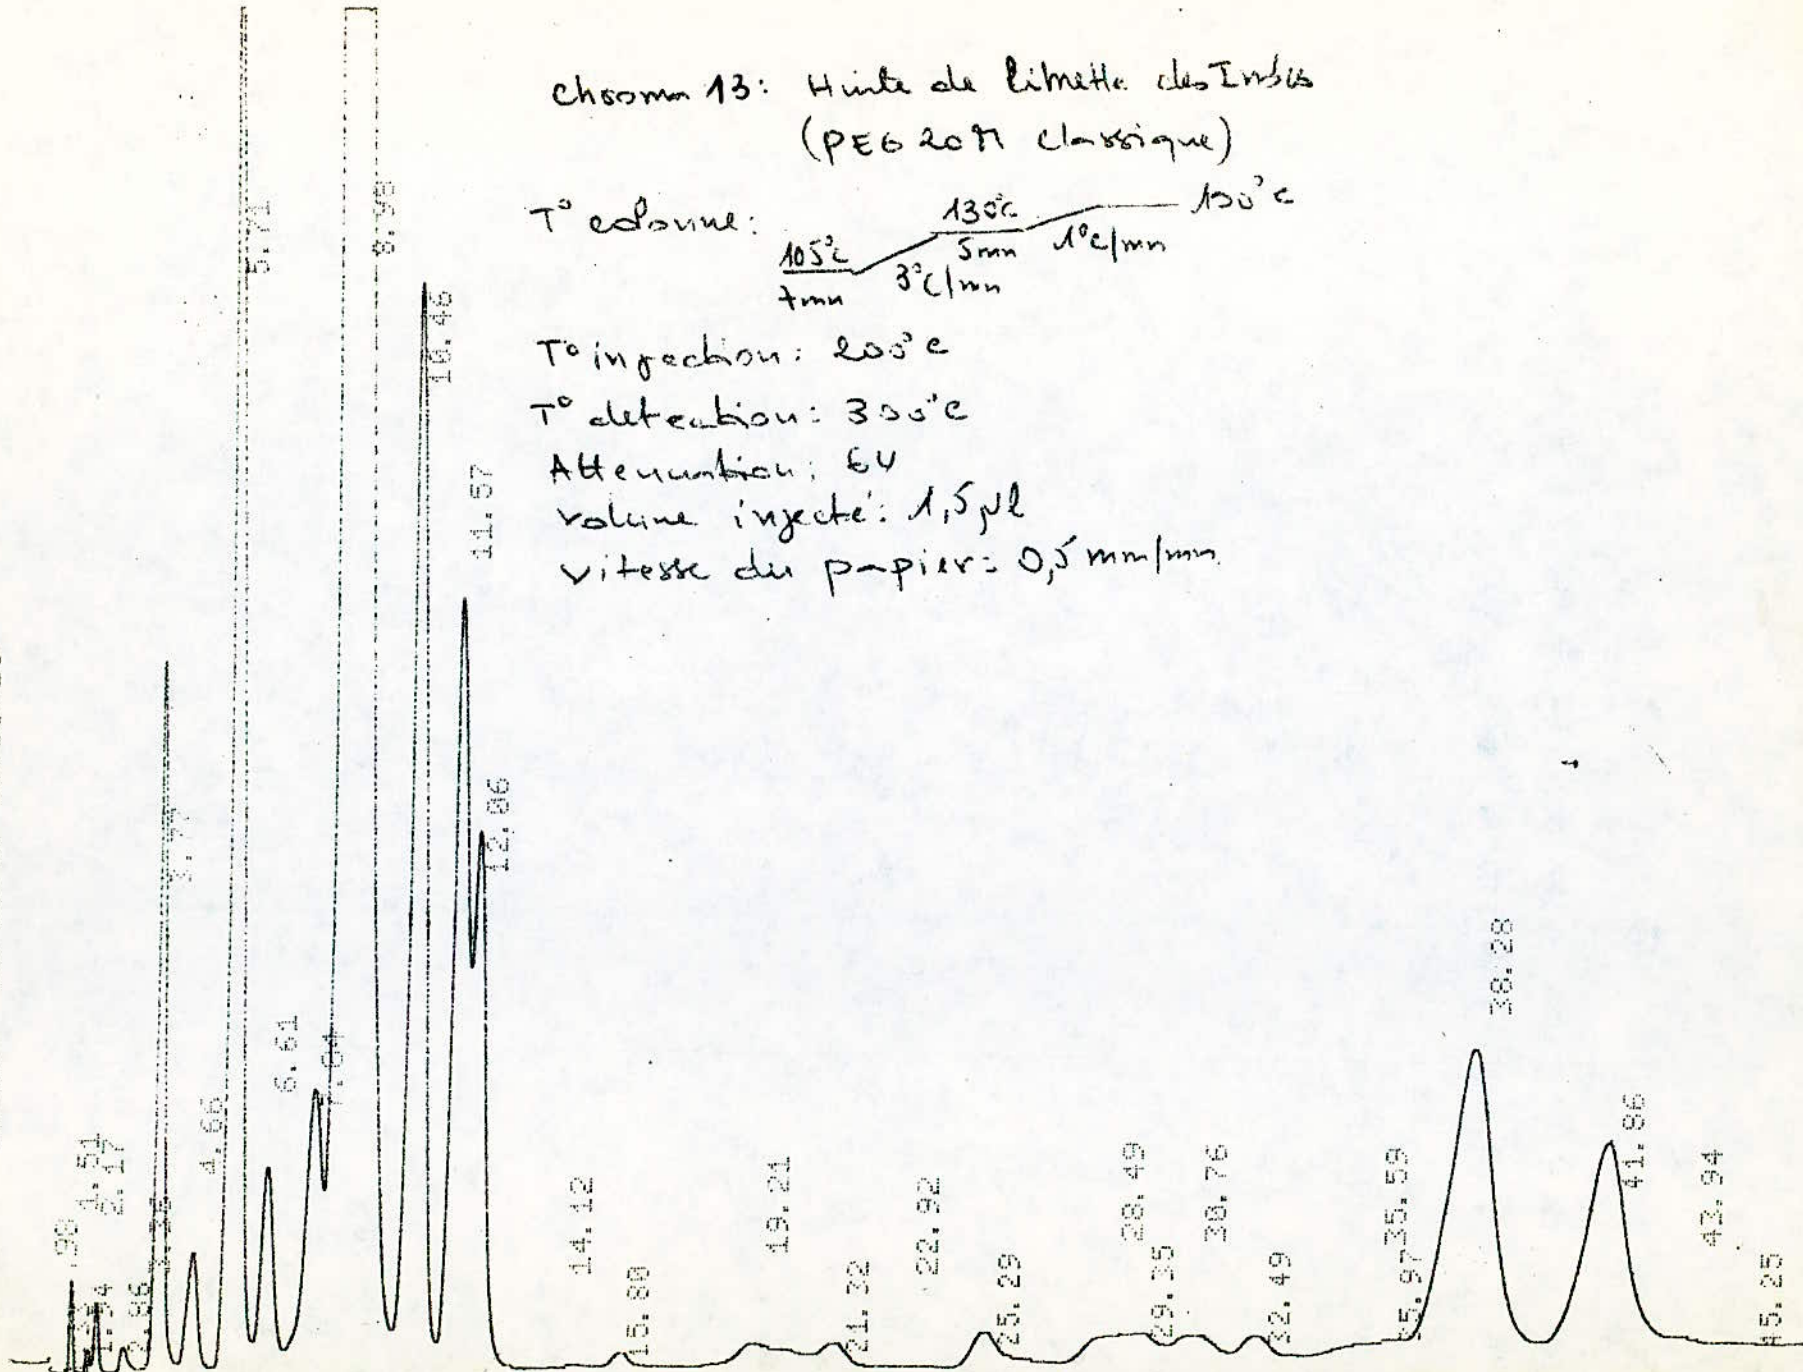 Chrom 13: Huile de limette des Indes
(PEG 20M classique)
T° colonne:
105°C
7mn
3°C/mn
130°C
5mn
1°C/mn
T° injection: 200°C
T° detection: 300°C
Attenuation: 64
volume injecté: 1,5 µl
vitesse du papier: 0,5 mm/mn
.98
1.51
2.17
2.86
3.77
4.66
5.71
6.61
8.98
10.46
11.57
12.06
14.12
15.80
19.21
21.32
22.92
25.29
28.49
29.35
30.76
32.49
35.59
35.97
38.28
41.86
43.94
45.25